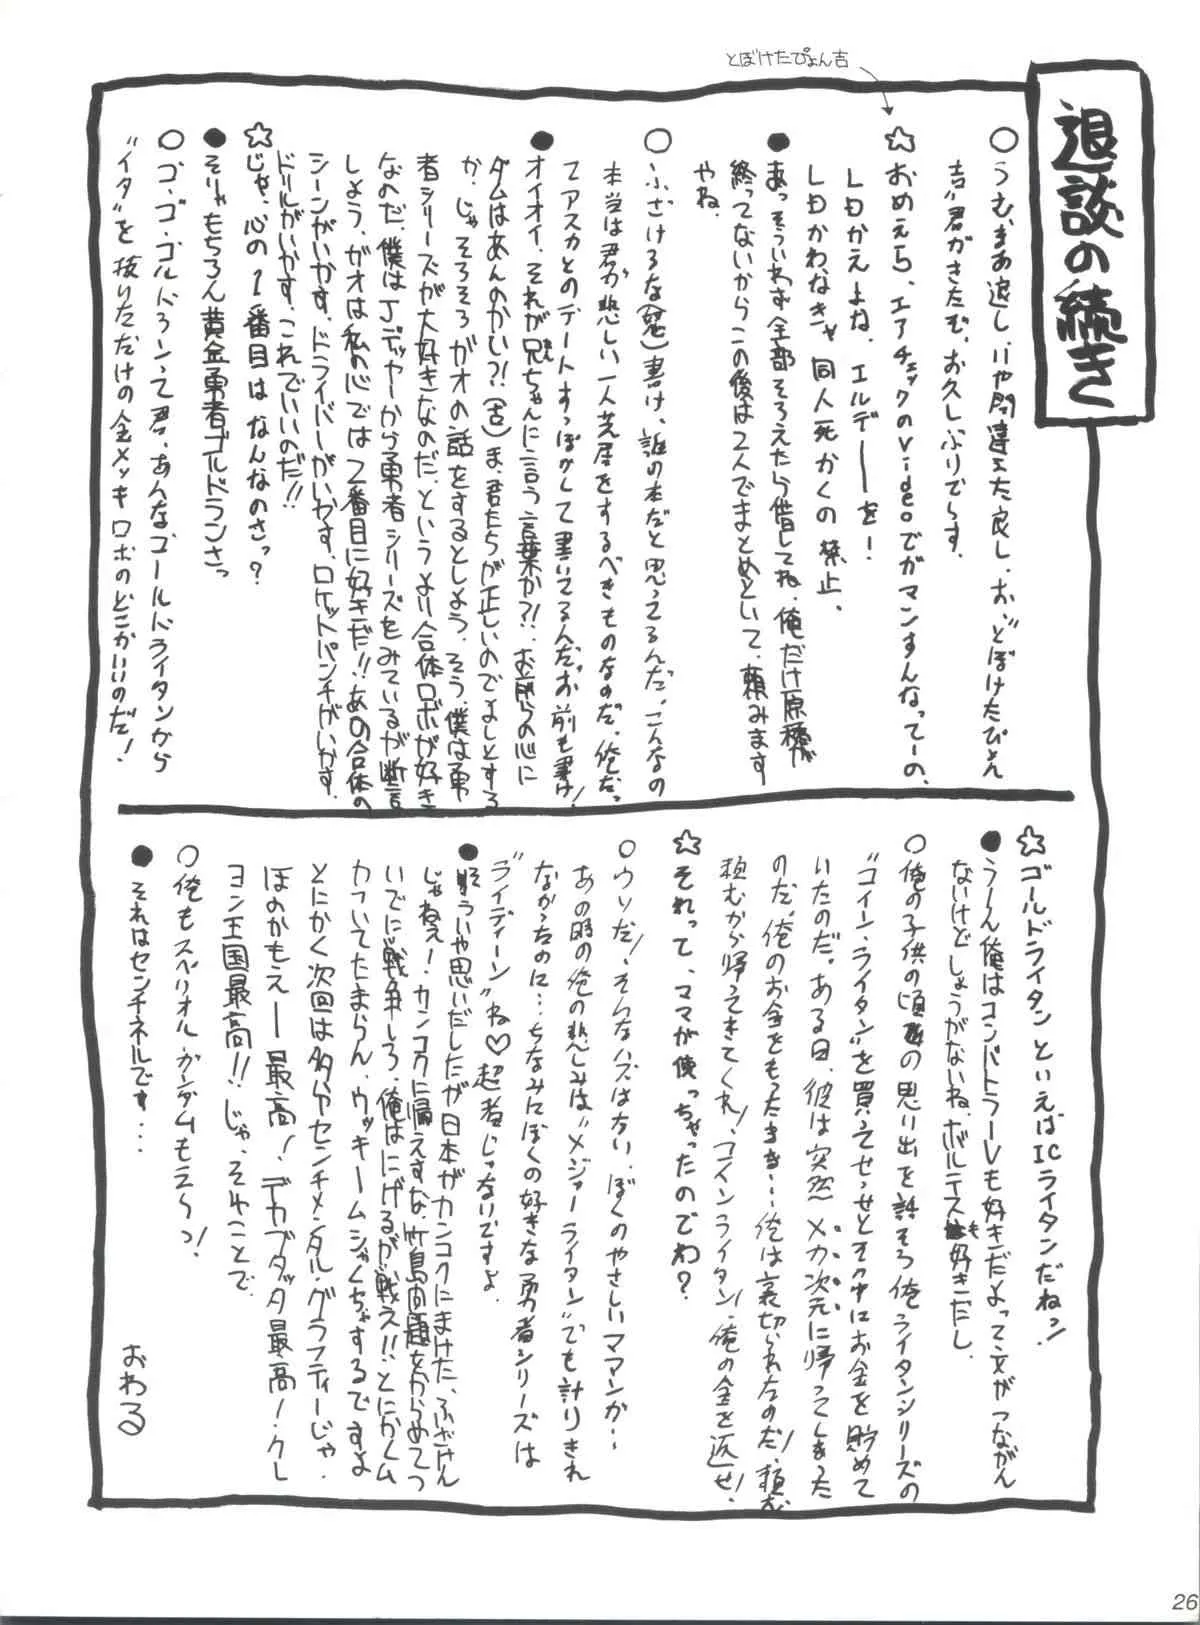 退談の続き
とぼけたぴょん吉
○うむ、まあ退し、いや間違えた良し、お、“とぼけたぴょん
吉”君がきたむ。お久しぶりでらす。
☆おめえら、エアチェックのVideoでガマンすんなってーの、
LDかえよね、エルデーーを!
LDかわなきゃ同人死かくの禁止、
●あっそういわず全部そろえたら借してね、俺だけ原稿が
終ってないからこの後は2人でまとめといて、頼みます
やね。
○ふざけろな(怒)書け、誰の本だと思ってるんだ、こんなの
本当は君が悲しい一人芝居をするべきものなのだ。俺だっ
てアスカとのデートすっぽかして書いてるんだ。お前も書け!
●オイオイ、それが兄ちゃんに言う言葉か?!、お前らの心に
ダムはあんのかい?!(古)ま、君たちが正しいのでよしとする
か、じゃそろそろガオの話をするとしよう。そう、僕は勇
者シリーズが大好きなのだ、というより合体ロボが好き
なのだ、僕はJデッカーから勇者シリーズをみているが断言
しよう、ガオは私の心では2番目に好きだ!!あの合体の
シーンがいかす、ドライバーがいかす、ロケットパンチがいかす、
ドリルがいかす、これでいいのだ!!
☆じゃ、心の1番目はなんなのさっ?
●そりゃもちろん黄金勇者ゴルドランさっ
○ゴ・ゴ・ゴルドランって君、あんなゴールドライタンから
“イタ”を抜いただけの金メッキロボのどこがいいのだ!
☆ゴールドライタンといえばICライタンだねっ!
●うーん俺はコンバトラーVも好きだよって文がつながん
ないけどしょうがないね、ボルテスも好きだし、
○俺の子供の頃の思い出を話そう俺、ライタンシリーズの
“コイン・ライタン”を買ってせっせとその中にお金を貯めて
いたのだ。ある日、彼は突然メカ次元に帰ってしまった
のだ、俺のお金をもったまま…俺は裏切られたのだ!頼む
頼むから帰ってきてくれ!コインライタン!俺の金を返せ!
☆それって、ママが使っちゃったのでわ?
○ウソだ!そんなハズはない、ぼくのやさしいママンが…
あの時の俺の悲しみは“メジャーライタン”でも計りきれ
なかったのに…ちなみにぼくの好きな勇者シリーズは
“ライディーン”ね♡超者じゃないですよ
●そういや思いだしたが日本がカンコクにまけた、ふざけん
じゃねぇ!カンコクに帰えすな、竹島問題をからめてつ
いでに戦争しろ、俺はにげるが戦え!!とにかくム
カついてたまらん、ウッキームシャくちゃするですよ
とにかく次回は多分センチメンタル・グラフティーじゃ、
ほのかもえーー最高!デカブタッタ最高!・クレ
ヨン王国最高!!じゃ、そゆことで
○俺もスペリオル・ガンダムもえ〜っ!
●それはセンチネルです…
おわる
26